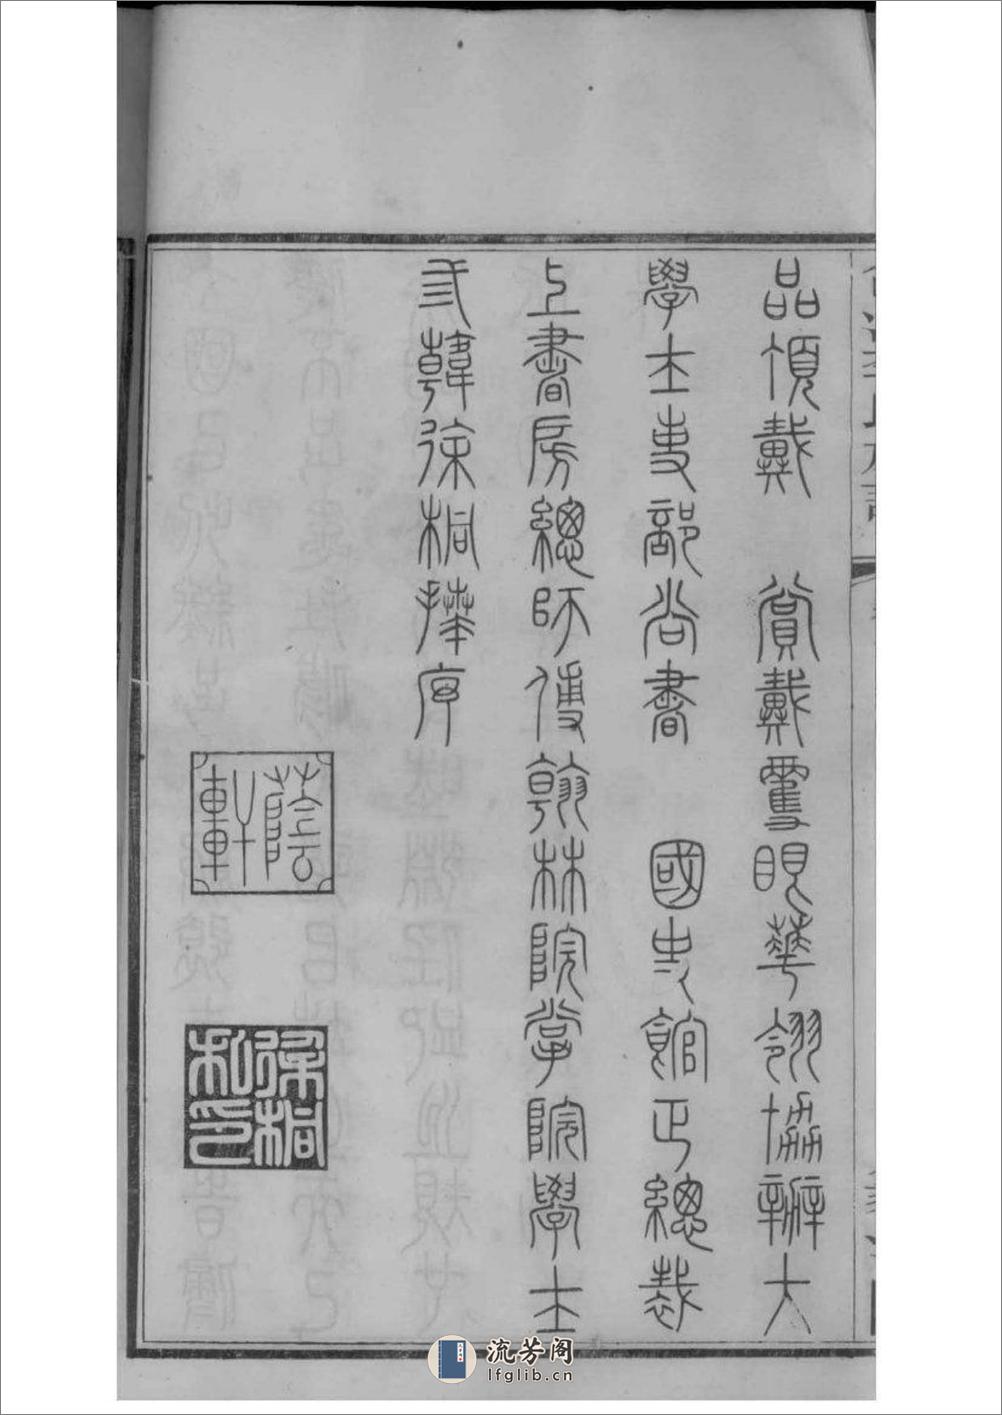 品頂戴　賞戴雙眼華翎協辦大
學士吏部尚書　國史館正總裁
上書房總師傅翰林院掌院學士
弎韓徐桐拜序
蔭軒
徐桐私印
流芳阁
lfglib.cn